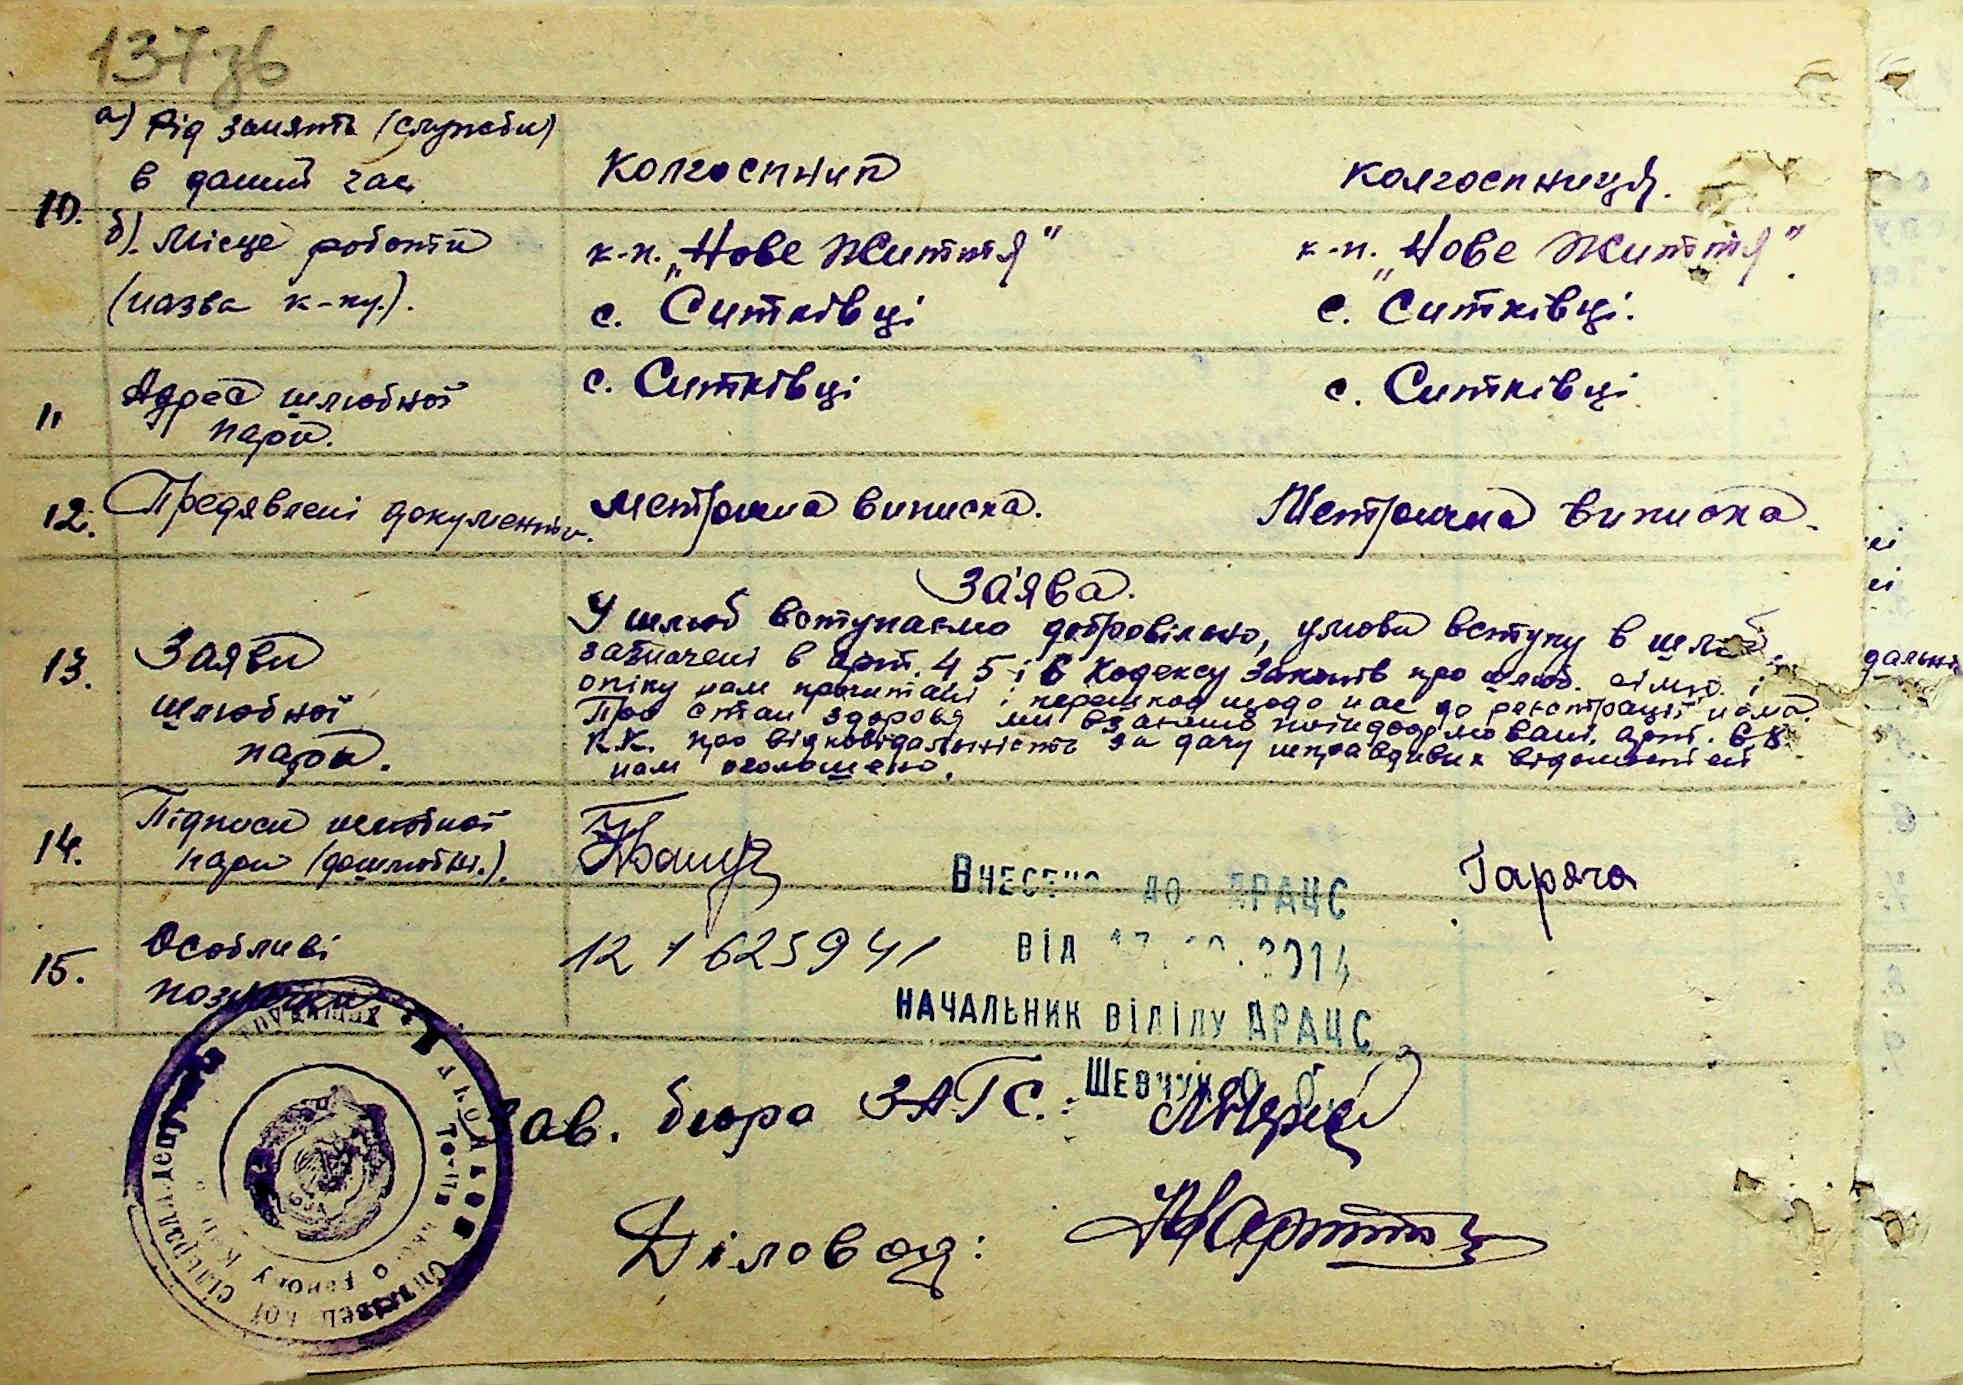 137 зв
а) Рід занять (служби)
в даний час
колгоспник
колгоспниця.
10.
б). Місце роботи
(назва к-пу.).
к-п. „Нове Життя"
к-п. „Нове Життя".
с. Ситківці
с. Ситківці.
11
Адреса шлюбної
пари.
с. Ситківці
с. Ситківці
12.
Предявлені документи.
метрична виписка.
Метрична виписка.
13.
Заяви
шлюбної
пари.
Заява.
У шлюб вступаємо добровільно, умови вступу в шлюб
зазначені в арт. 4 5 і 6 Кодексу Законів про шлюб. сімю. і
опіку нам прочитані і перешкод щодо нас до реєстрації нема.
Про стан здоровя ми взаємно поінформовані, арт.
К.К. про відповідальність за дачу неправдивих відомостей
нам оголошено.
14.
Підписи шлюбної
пари (дошлюбні.).
Гаряча
Внесено до ДРАЦС
15.
Особливі
позначки
12 1 6259 41
від 2014
НАЧАЛЬНИК ВІДІЛУ ДРАЦС
Шевчук О.
Зав. бюро ЗАГС.:
Діловод: